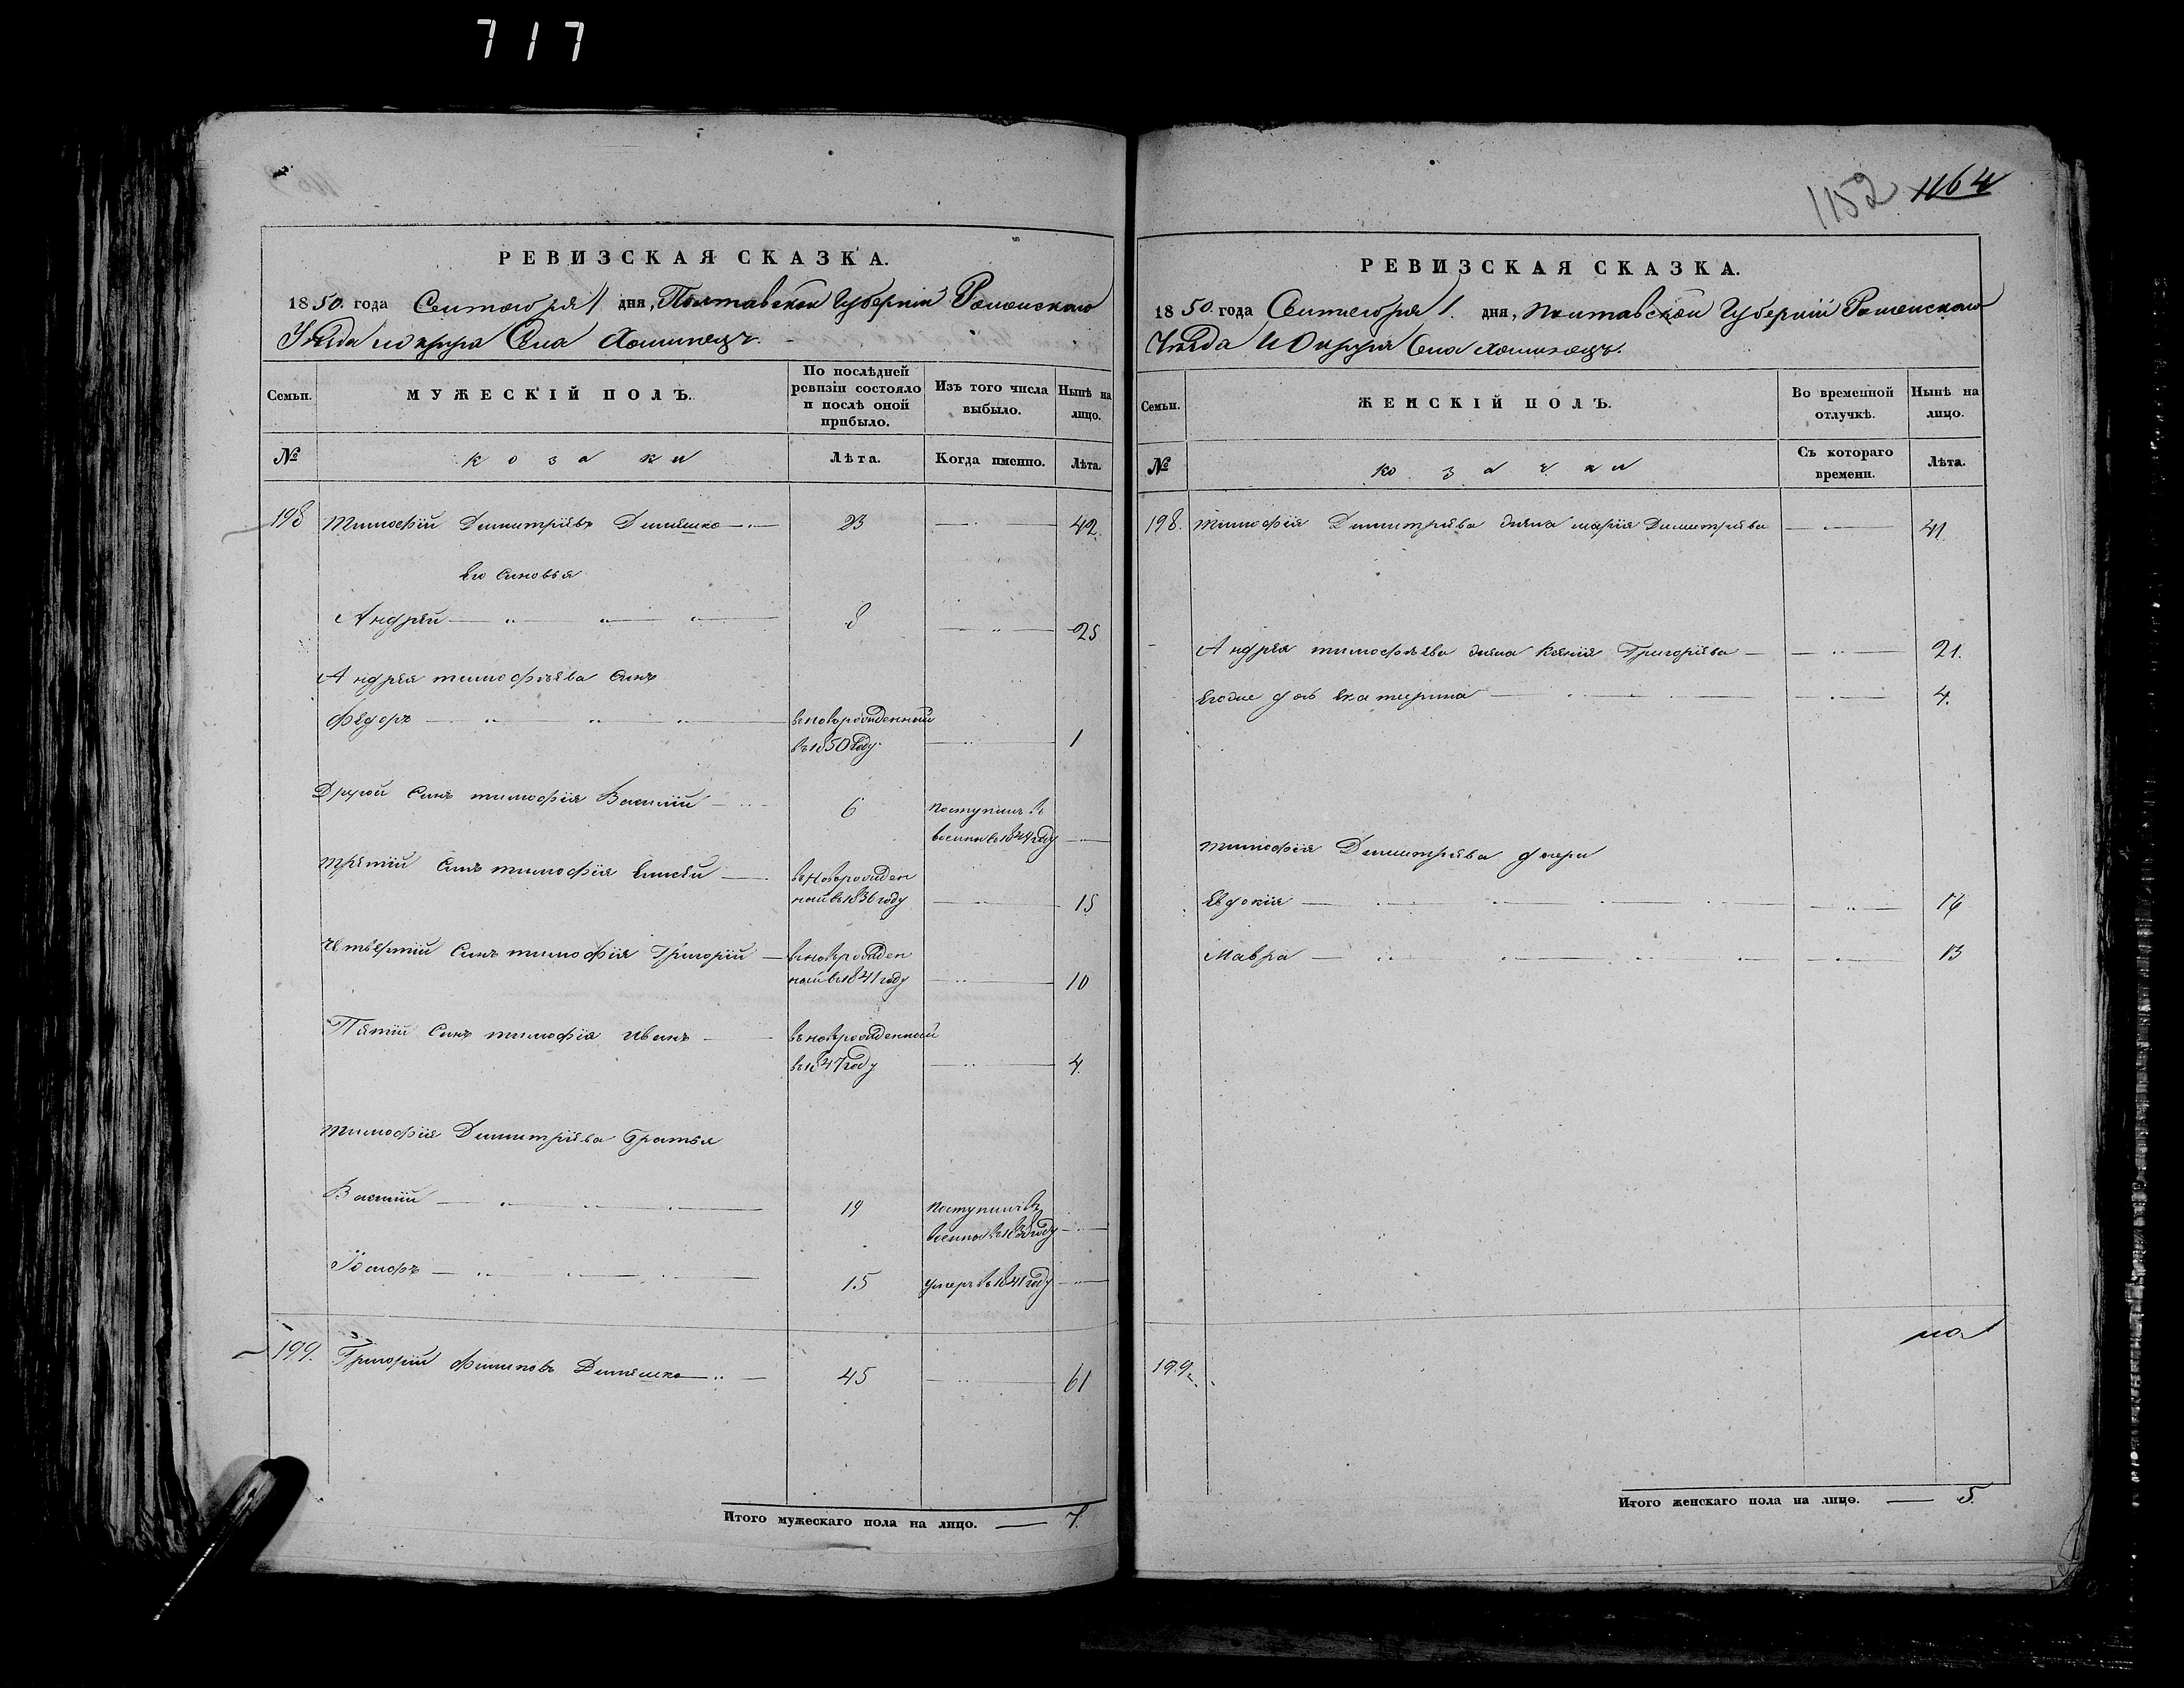 717
РЕВИЗСКАЯ СКАЗКА.
1850. года Сентября 1 дня, Полтавской Губернии Роменскаго
Уезда и округа Села Хоминецъ.
Семьи.
МУЖЕСКІЙ ПОЛЪ.
По послѣдней ревизіи состояло и послѣ оной прибыло.
Изъ того числа выбыло.
Нынѣ на лицо.
№
козаки
Лѣта.
Когда именно.
Лѣта.
198 Тимофій Димитріевъ 23 42.
Его синовья
Андрей 8 25
Андрея тимофѣева Синъ
Федоръ вновьрожденний
въ 1850 году. 1
Другой Синъ тимофія Василій 6 поступилъ в
военни въ 1844 году
третій Синъ тимофія Елисей вновьрожден
ний въ 1836 году 15
четвертій Синъ тимофія Григорій вновьрожден
ний въ 1841 году 10
Пятій Синъ тимофія Иванъ вновьрожденний
въ 1847 году 4.
тимофія Димитріева братья
Василій 19 поступилъ въ
Іосифъ 15 умеръ въ 1841 году
199. Григорій Филиповъ 45 61
Итого мужескаго пола на лицо. 7.
1152 1164
РЕВИЗСКАЯ СКАЗКА.
1850. года Сентября 1. дня, Полтавской Губерніи Роменскаго
Уезда и Округа Села Хоминецъ.
Семьи.
ЖЕНСКІЙ ПОЛЪ.
Во временной отлучкѣ.
Нынѣ на лицо.
№
козачки
Съ котораго времени.
Лѣта.
198. тимофія Димитріева жена марія Димитріева 41
Андрея тимофѣева жена Ксенія Григоріева 21.
Егоже дочь Екатерина 4.
тимофія Димитріева дочери
Евдокія 16
Мавра 13
199.
Итого женскаго пола на лицо. 5.